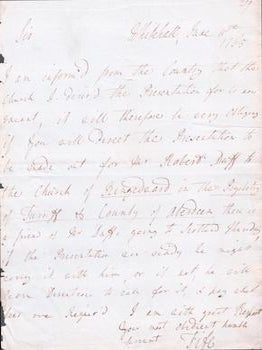 Sir
Whitehall, June
1765
I am inform'd from the Country that the
Church I desired the Presentation for is now
vacant, it will therefore be very obliging
if you will Direct the Presentation to
be made out for Mr Robert Duff to
the Church of King Edward in the Presbytery
of Turriff & County of Aberdeen there is
a friend of Mr Duffs going to Scotland Thursday
if the Presentation are ready he might
carry it with him, or if not he will
leave Directions to call for it, & pay what
I am with great Respect
Your most obedient humble
Servant
Fife